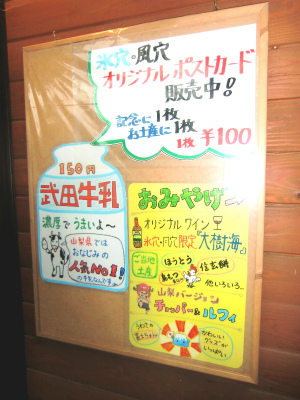 氷穴・風穴
オリジナルポストカード
販売中!
記念に1枚
お土産に1枚
1枚 ¥100
150円
武田牛乳
濃厚でうまいよ～
山梨県では
おなじみの
人気No.1!
の牛乳なんです
おみやげ
オリジナルワイン
氷穴・風穴限定『大樹海』
ご当地
土産
ほうとう
信玄餅
他いろいろ…
山梨バージョン
チョッパー&ルフィ
かわいい
グッズが
いっぱい